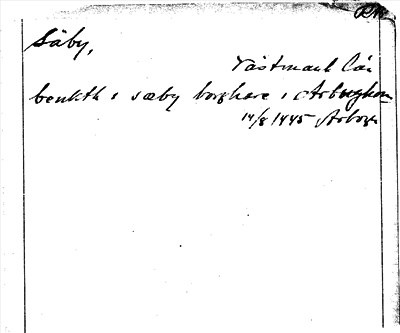 Säby,
Västmanl. län
benkth i sæby borghare i Arbughom
14/8 1445 Arboga